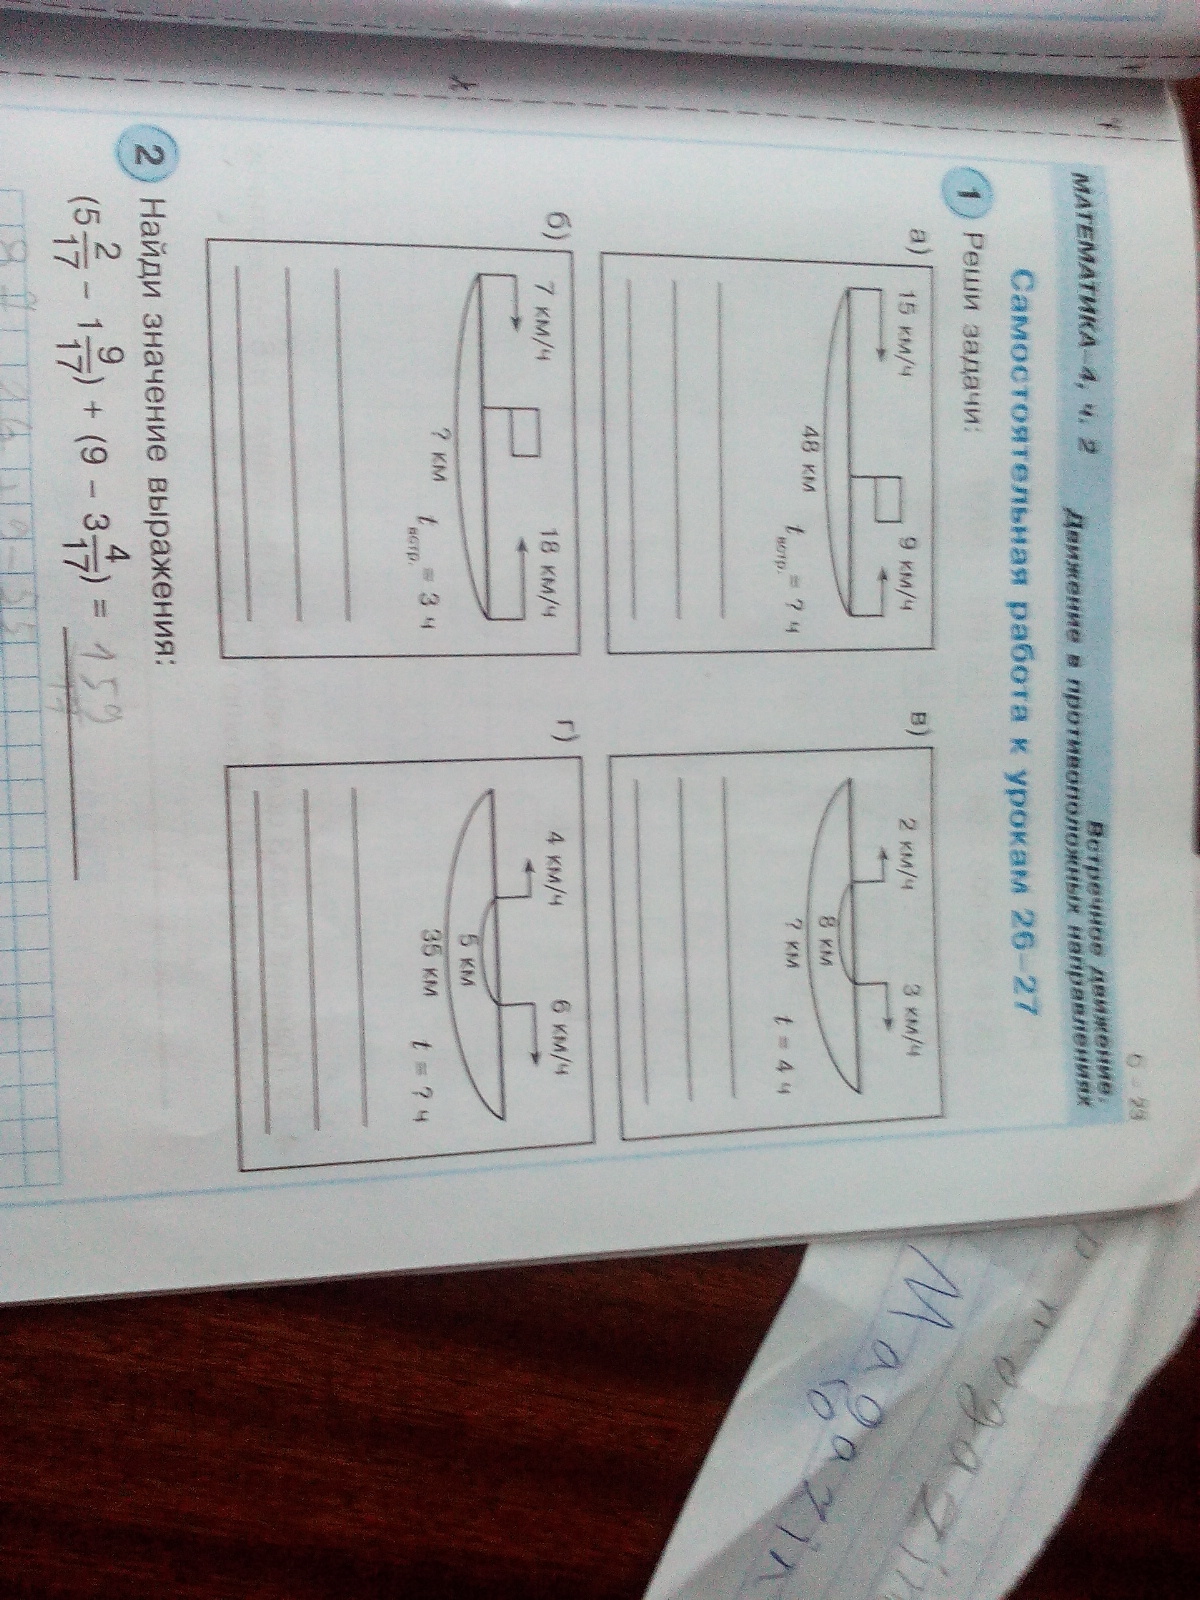 6-23
МАТЕМАТИКА–4, ч. 2
Встречное движение.
Движение в противоположных направлениях
Самостоятельная работа к урокам 26–27
1 Реши задачи:
а)
15 км/ч 9 км/ч
48 км tвстр. = ? ч
б)
7 км/ч 18 км/ч
? км tвстр. = 3 ч
в)
2 км/ч 3 км/ч
8 км
? км t = 4 ч
г)
4 км/ч 6 км/ч
5 км
35 км t = ? ч
2 Найди значение выражения:
(5 2/17 – 1 9/17) + (9 – 3 4/17) =
Magazin